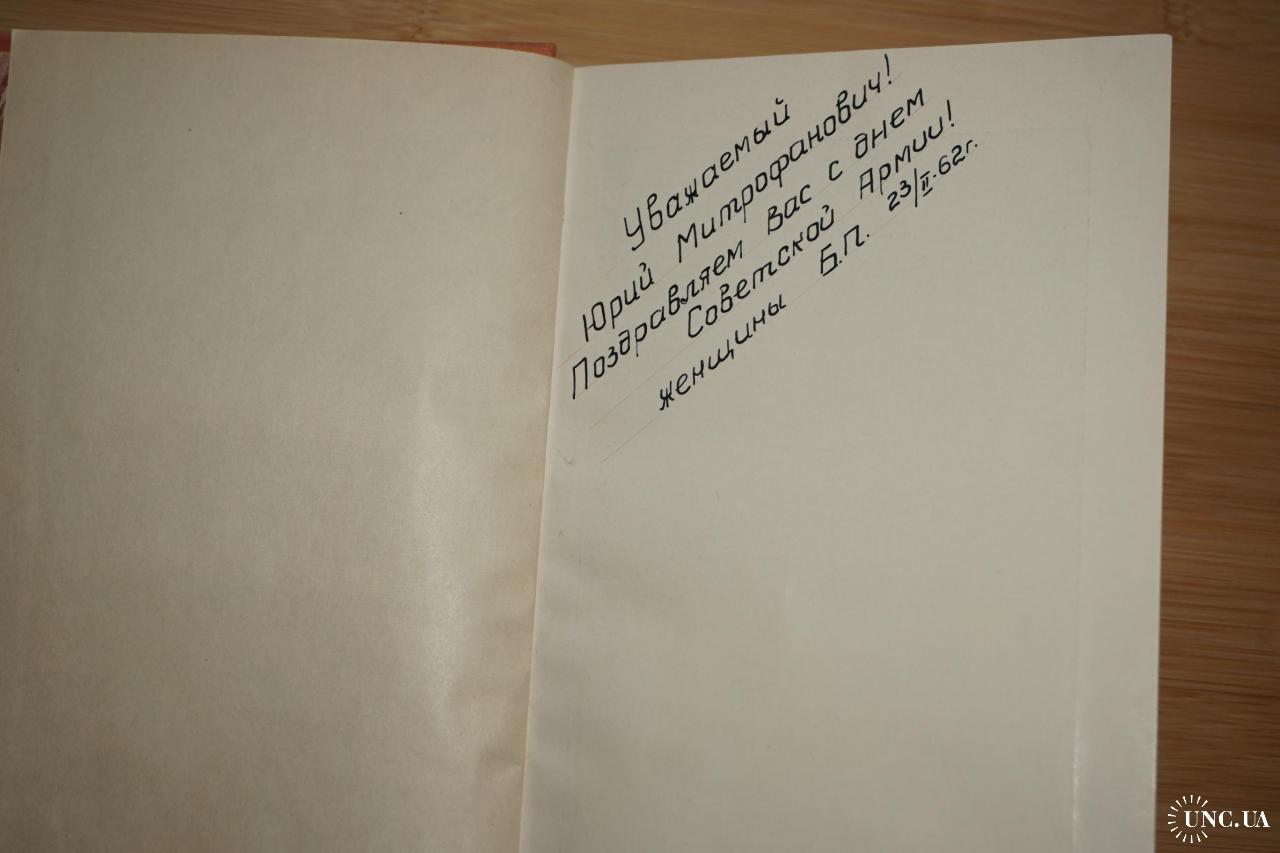 Уважаемый
Юрий Митрофанович!
Поздравляем Вас с днем
Советской Армии!
женщины Б.П. 23/II.62г.
UNC.UA